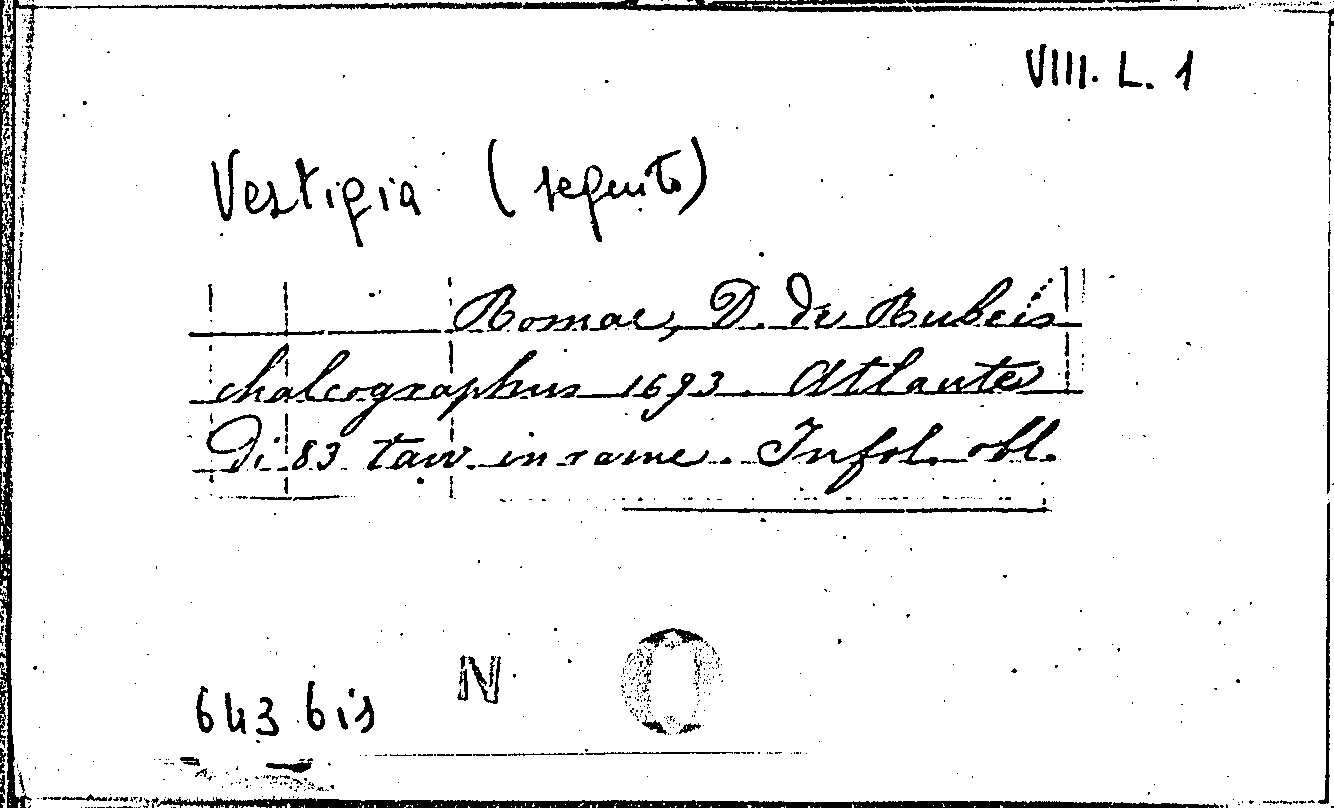 VIII. L. 1
Vestigia (seguito)
Romae, D. de Rubeis
chalcographus 1693. Atlante
di 83 tav. in rame. In fol. obl.
643 bis N